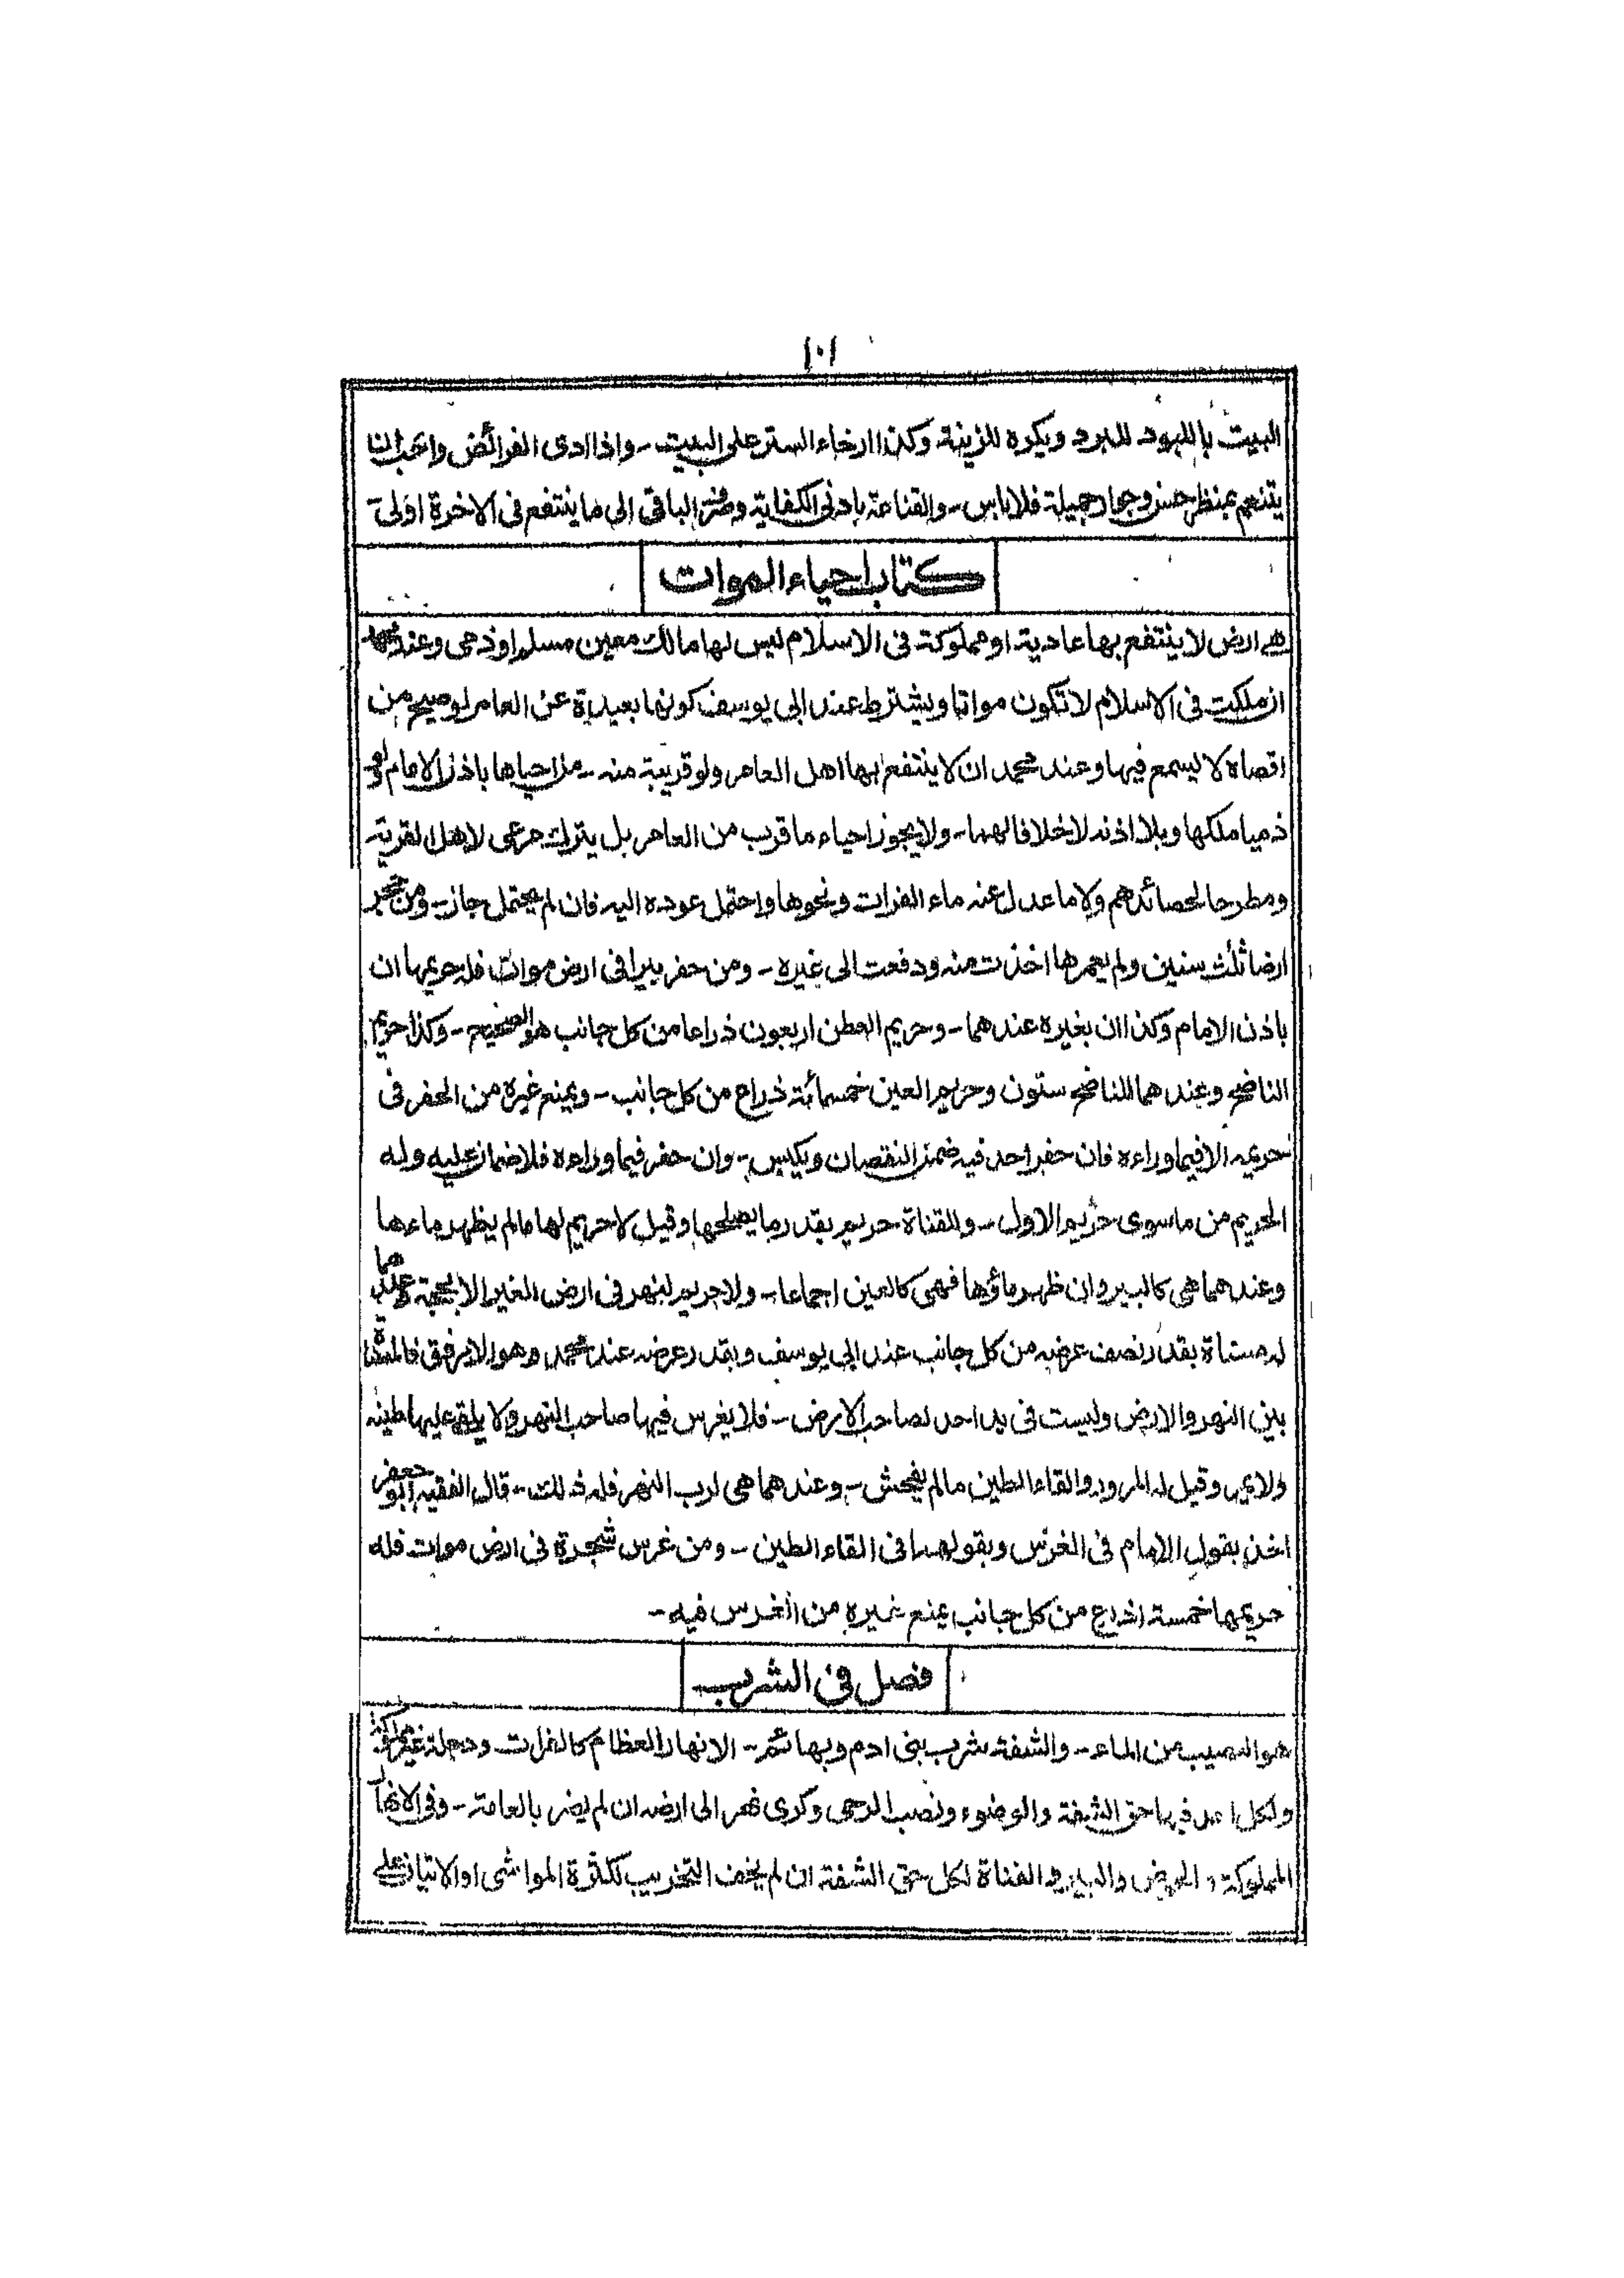 ١٠١
البيت باللبود للبرد ويكره للزينة وكذا ارخاء الستر على البيت - واذا ادى الفرائض واحب ان
يتنعم بمنظر حسن وجوار جميلة فلا باس - والقناعة بادنى الكفاية وصرف الباقى الى ما ينتفع فى الاخرة اولى
كتاب احياء الموات
هى ارض لا ينتفع بها عادية او مملوكة فى الاسلام ليس لها مالك معين مسلم او ذمى وعند محمد
ان ملكت فى الاسلام لا تكون مواتا ويشترط عند ابى يوسف كونها بعيدة عن العامر لو صيح من
اقصاه لا يسمع فيها وعند محمد ان لا ينتفع بها اهل العامر ولو قريبة منه - من احياها باذن الامام ولو
ذميا ملكها وبلا اذنه لا خلافا لهما - ولا يجوز احياء ما قرب من العامر بل يترك مرعى لاهل القرية
ومطرحا لحصائدهم ولا ما عدل عنه ماء الفرات ونحوها واحتمل عوده اليه فان لم يحتمل جاز - ومن حجر
ارضا ثلث سنين ولم يعمرها اخذت منه ودفعت الى غيره - ومن حفر بيرا فى ارض موات فله حريمها ان
باذن الامام وكذا ان بغيره عندهما - وحريم العطن اربعون ذراعا من كل جانب هو الصحيح - وكذا حريم
الناضح وعندهما للناضح ستون وحريم العين خمسمائة ذراع من كل جانب - ويمنع غيره من الحفر فى
حريمه الا فيما وراءه فان حفر احد فيه ضمن النقصان ويكبس - وان حفر فيما وراءه فلا ضمان عليه وله
الحريم من ما سوى حريم الاول - وللقناة حريم بقدر ما يصلحها وقيل لا حريم لها ما لم يظهر ماءها
وعندهما هى كالبير وان ظهر ماؤها فهى كالعين اجماعا - ولا حريم لنهر فى ارض الغير الا بحجة وعندهما
له مسناة بقدر نصف عرضه من كل جانب عند ابى يوسف وبقدر عرضه عند محمد وهو الارفق فالمسناة
بين النهر والارض وليست فى يد احد لصاحب الارض - فلا يغرس فيها صاحب النهر ولا يلقى عليها طينه
ولا يمر وقيل له المرور والقاء الطين ما لم يفحش - وعندهما هى لرب النهر فله ذلك - قال الفقيه ابو جعفر
اخذ بقول الامام فى الغرس وبقولهما فى القاء الطين - ومن غرس شجرة فى ارض موات فله
حريمها خمسة اذرع من كل جانب يمنع غيره من الغرس فيه -
فصل فى الشرب
هو النصيب من الماء - والشفة شرب بنى ادم وبهائم - الانهار العظام كالفرات ودجلة غير مملوكة
ولكل احد فيها حق الشفة والوضوء ونصب الرحى وكرى نهر الى ارضه ان لم يضر بالعامة - وفى الانهار
المملوكة والحوض والبير والقناة لكل حق الشفة ان لم يخف التخريب لكثرة المواشى او الاتيان على